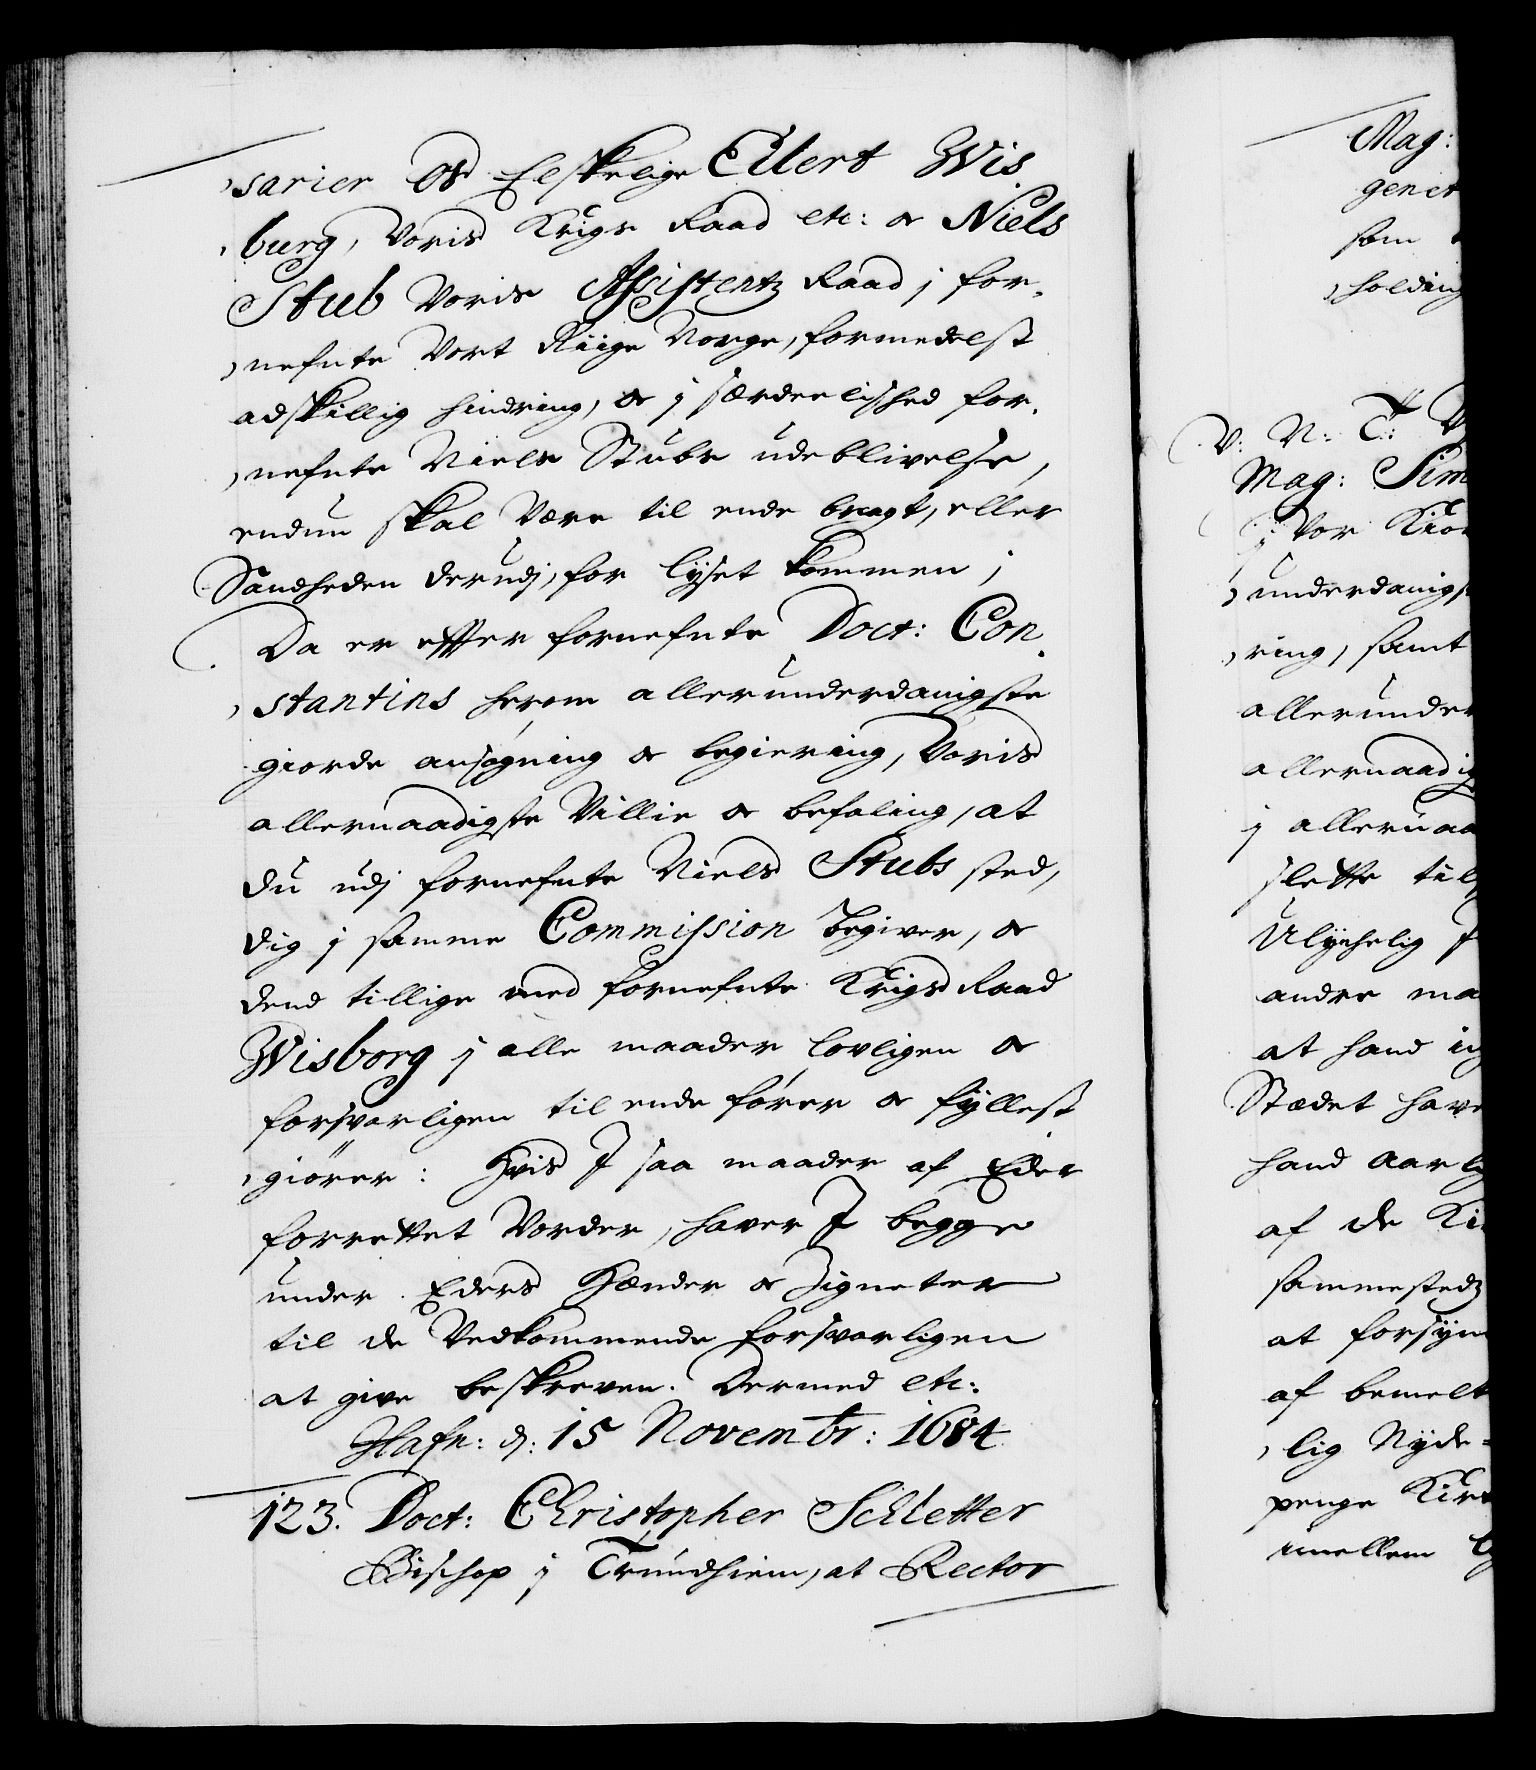 sarier Os Elskelige Eilert Wis
burg, Voris Krigs Raad etc: oc Niels
Stub Voris Assistentz Raad j for-
nefnte Vort Riige Norge, formedelst
adskillig hindring, oc j særdeelished for-
nefnte Niels Stubs udeblivelse,
endnu skal Være til ende bragt, eller
Sandheden derudj, for lyset kommen;
Da er effter fornefnte Doct: Con
stantins herom allerunderdanigste
giorde ansøgning oc begiering, Voris
allernaadigste Villie oc befaling, at
du udj fornefnte Niels Stubs sted,
dig j samme Commission begiver, oc
dend tillige med fornefnte Krigs Raad
Wisborg j alle maader lovligen oc
forsvarligen til ende fører oc fyllest
giører: Hvis I saa maader af Eder
forrettet Vorder, haver I begge
under Eders Hænder oc Zigneter
til de Vedkommende forsvarligen
at give beskreven. Dermed etc:
Hafn: d: 15 Novembr: 1684
123. Doct: Christopher Schletter
Bischop j Trundhiem, at Rector
Mag:
genet
som
holding
V: N: T:
Mag: Sim
j Vor Kiøb
underdanigs
ring, samt
allerunder
allernaadig
j allernaa
slette til
Ulychelig
andre ma
at hand
Stædet have
hand Aarl
af de Ki
sammestedz
at forsyn
af bemelt
lig Nyde
penge Kir
imellem